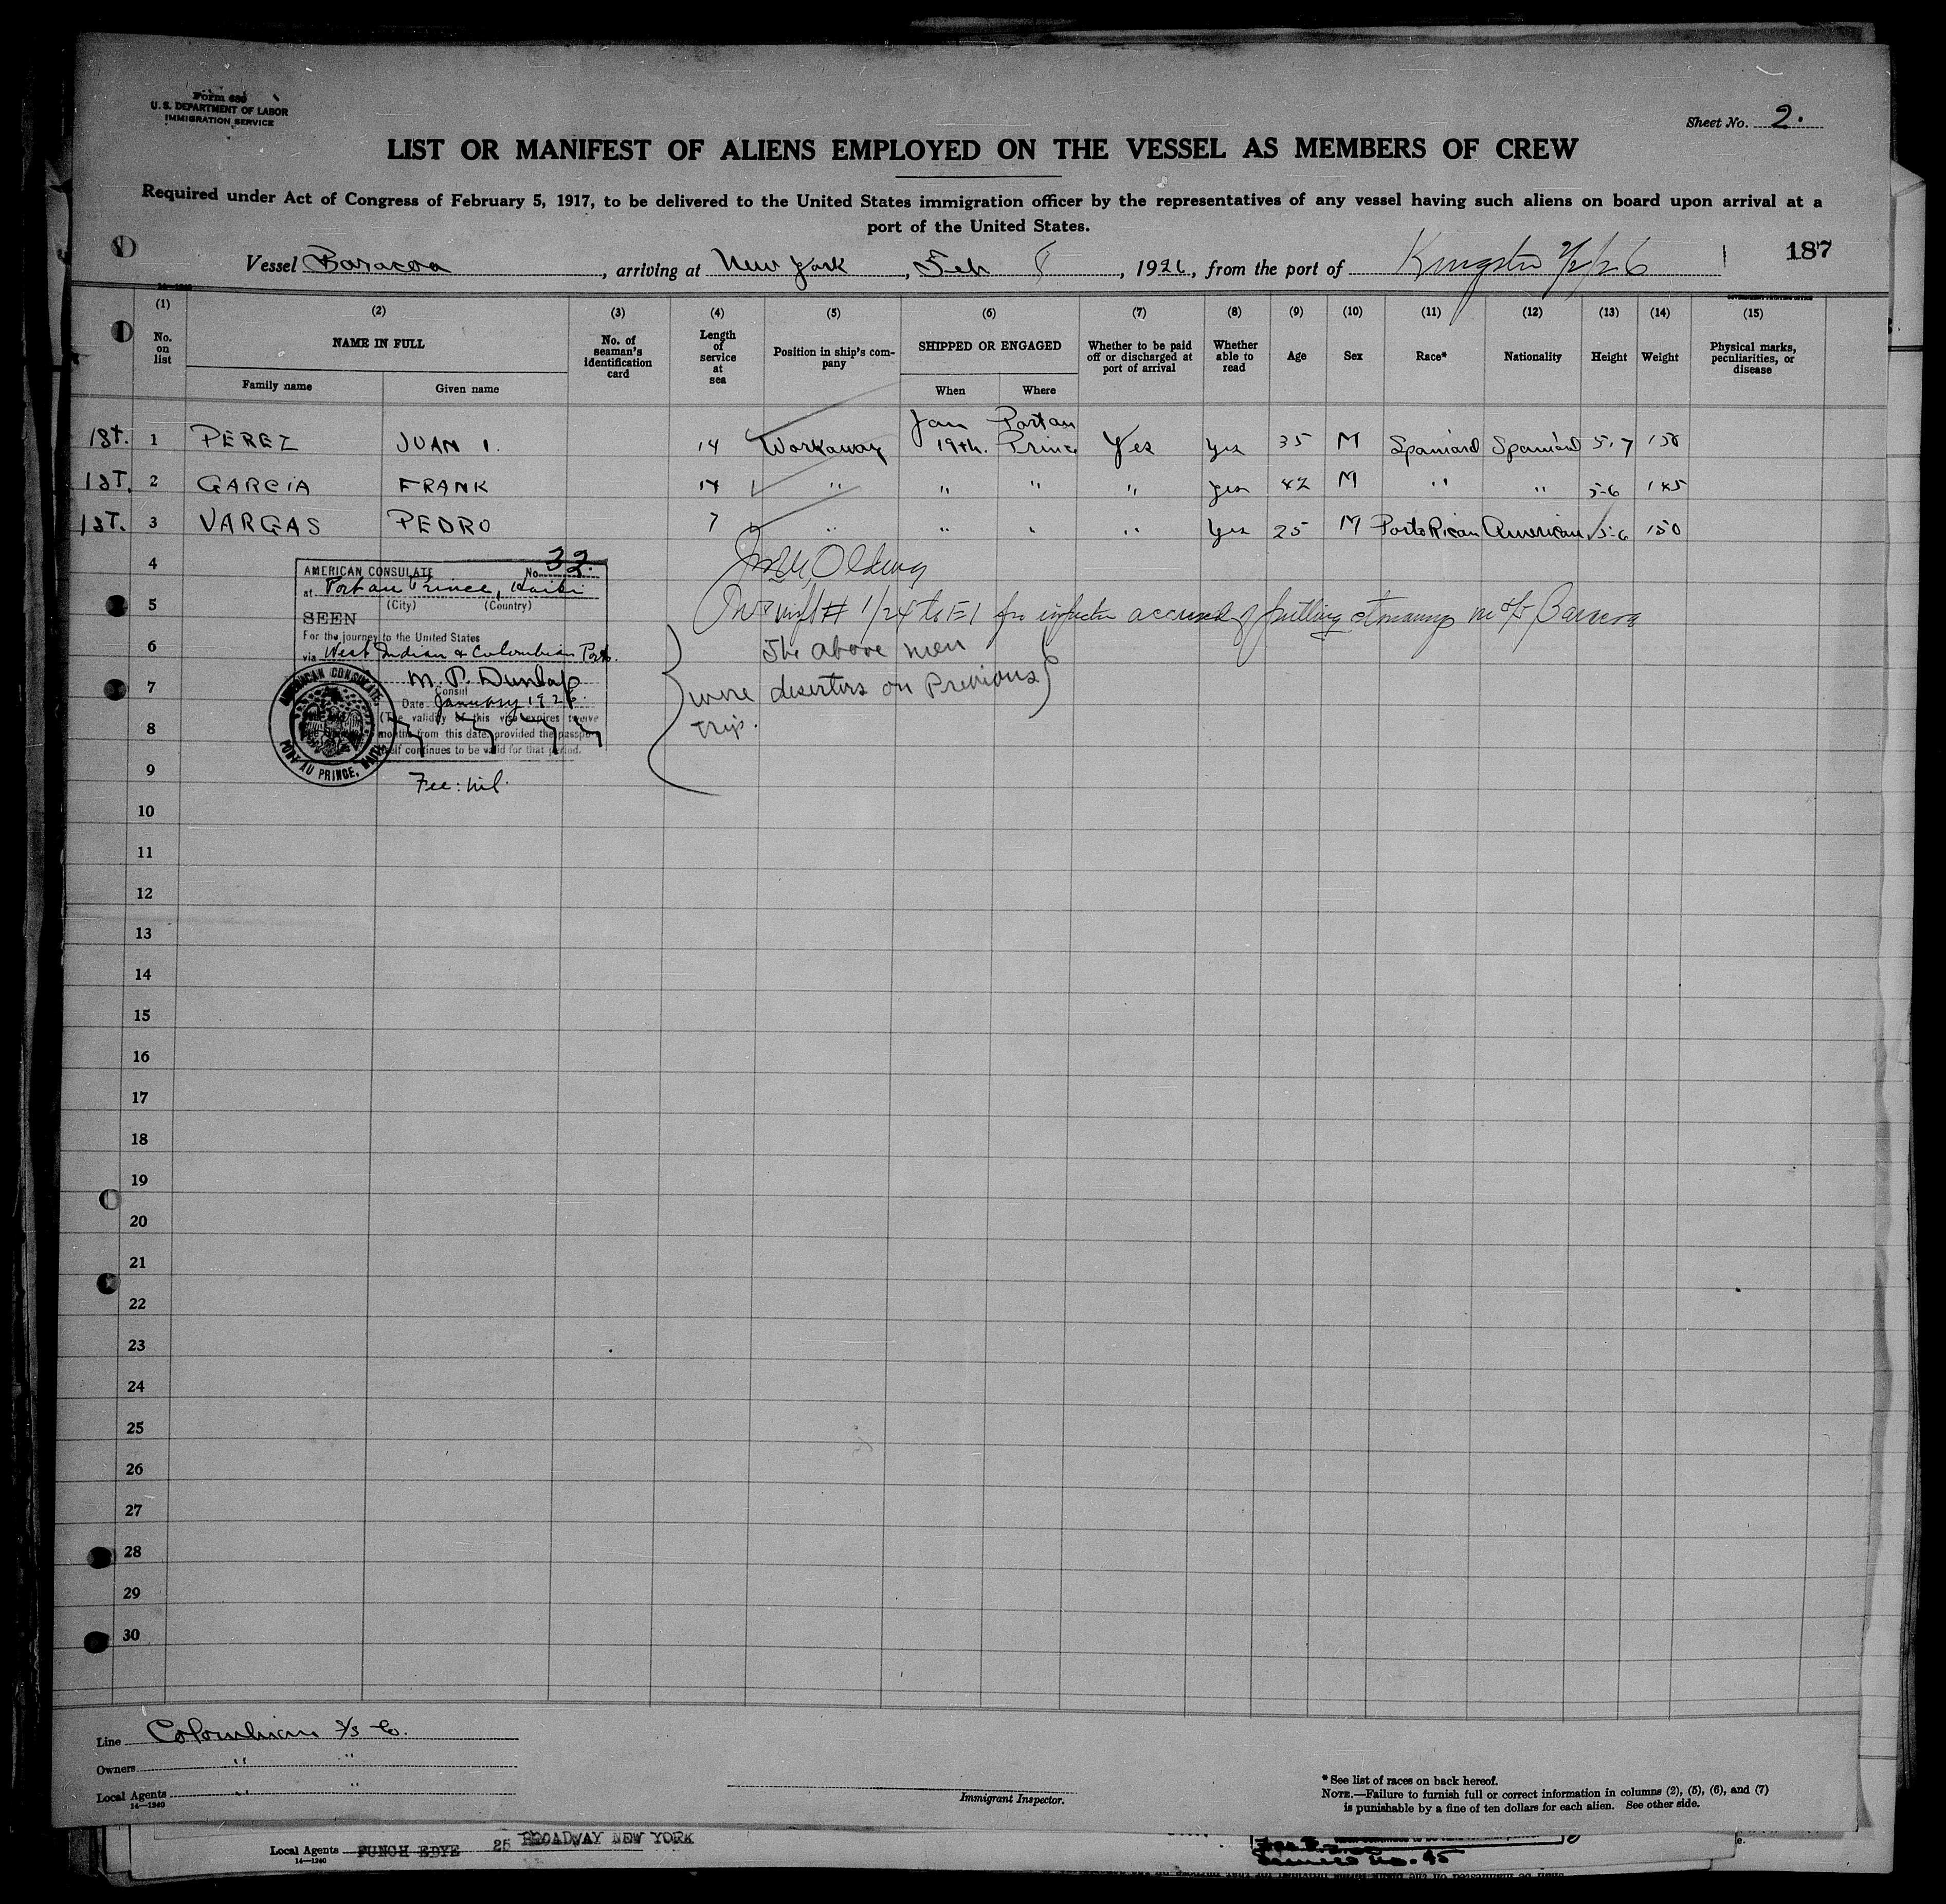 Form 689
U. S. DEPARTMENT OF LABOR
IMMIGRATION SERVICE
Sheet No. 2.
LIST OR MANIFEST OF ALIENS EMPLOYED ON THE VESSEL AS MEMBERS OF CREW
Required under Act of Congress of February 5, 1917, to be delivered to the United States immigration officer by the representatives of any vessel having such aliens on board upon arrival at a
port of the United States.
Vessel Baracoa, arriving at New York, Feb 8, 1926, from the port of Kingston 2/2/26
187
(1) (2) (3) (4) (5) (6) (7) (8) (9) (10) (11) (12) (13) (14) (15)
No. on list NAME IN FULL Family name Given name No. of seaman's identification card Length of service at sea Position in ship's company SHIPPED OR ENGAGED When Where Whether to be paid off or discharged at port of arrival Whether able to read Age Sex Race* Nationality Height Weight Physical marks, peculiarities, or disease
1st. 1 PEREZ JUAN I. 14 Workaway Jan 19th. Port au Prince Yes Yes 35 M Spaniard Spaniard 5-7 158
1ST. 2 GARCIA FRANK 14 " " " " Yes 42 M " " 5-6 145
1ST. 3 VARGAS PEDRO 7 " " " " Yes 25 M Porto Rican American 5-6 150
4
5
6
7
8
9
10
11
12
13
14
15
16
17
18
19
20
21
22
23
24
25
26
27
28
29
30
AMERICAN CONSULATE No. 32.
at Port au Prince, Haiti
(City) (Country)
SEEN
For the journey to the United States
via West Indian & Colombian Ports.
M. P. Dunlap
Consul
Date January 1926.
(The validity of this visa expires twelve
months from this date provided the passport
itself continues to be valid for that period.
AMERICAN CONSULATE
PORT AU PRINCE, HAITI
Fee: nil.
The above men
were deserters on Previous
Trip.
Line Colombian S/S Co.
Owners " "
Local Agents " "
14—1240
Immigrant Inspector.
* See list of races on back hereof.
NOTE.—Failure to furnish full or correct information in columns (2), (5), (6), and (7)
is punishable by a fine of ten dollars for each alien. See other side.
Local Agents FUNCH EDYE 25 BROADWAY NEW YORK
14—1240